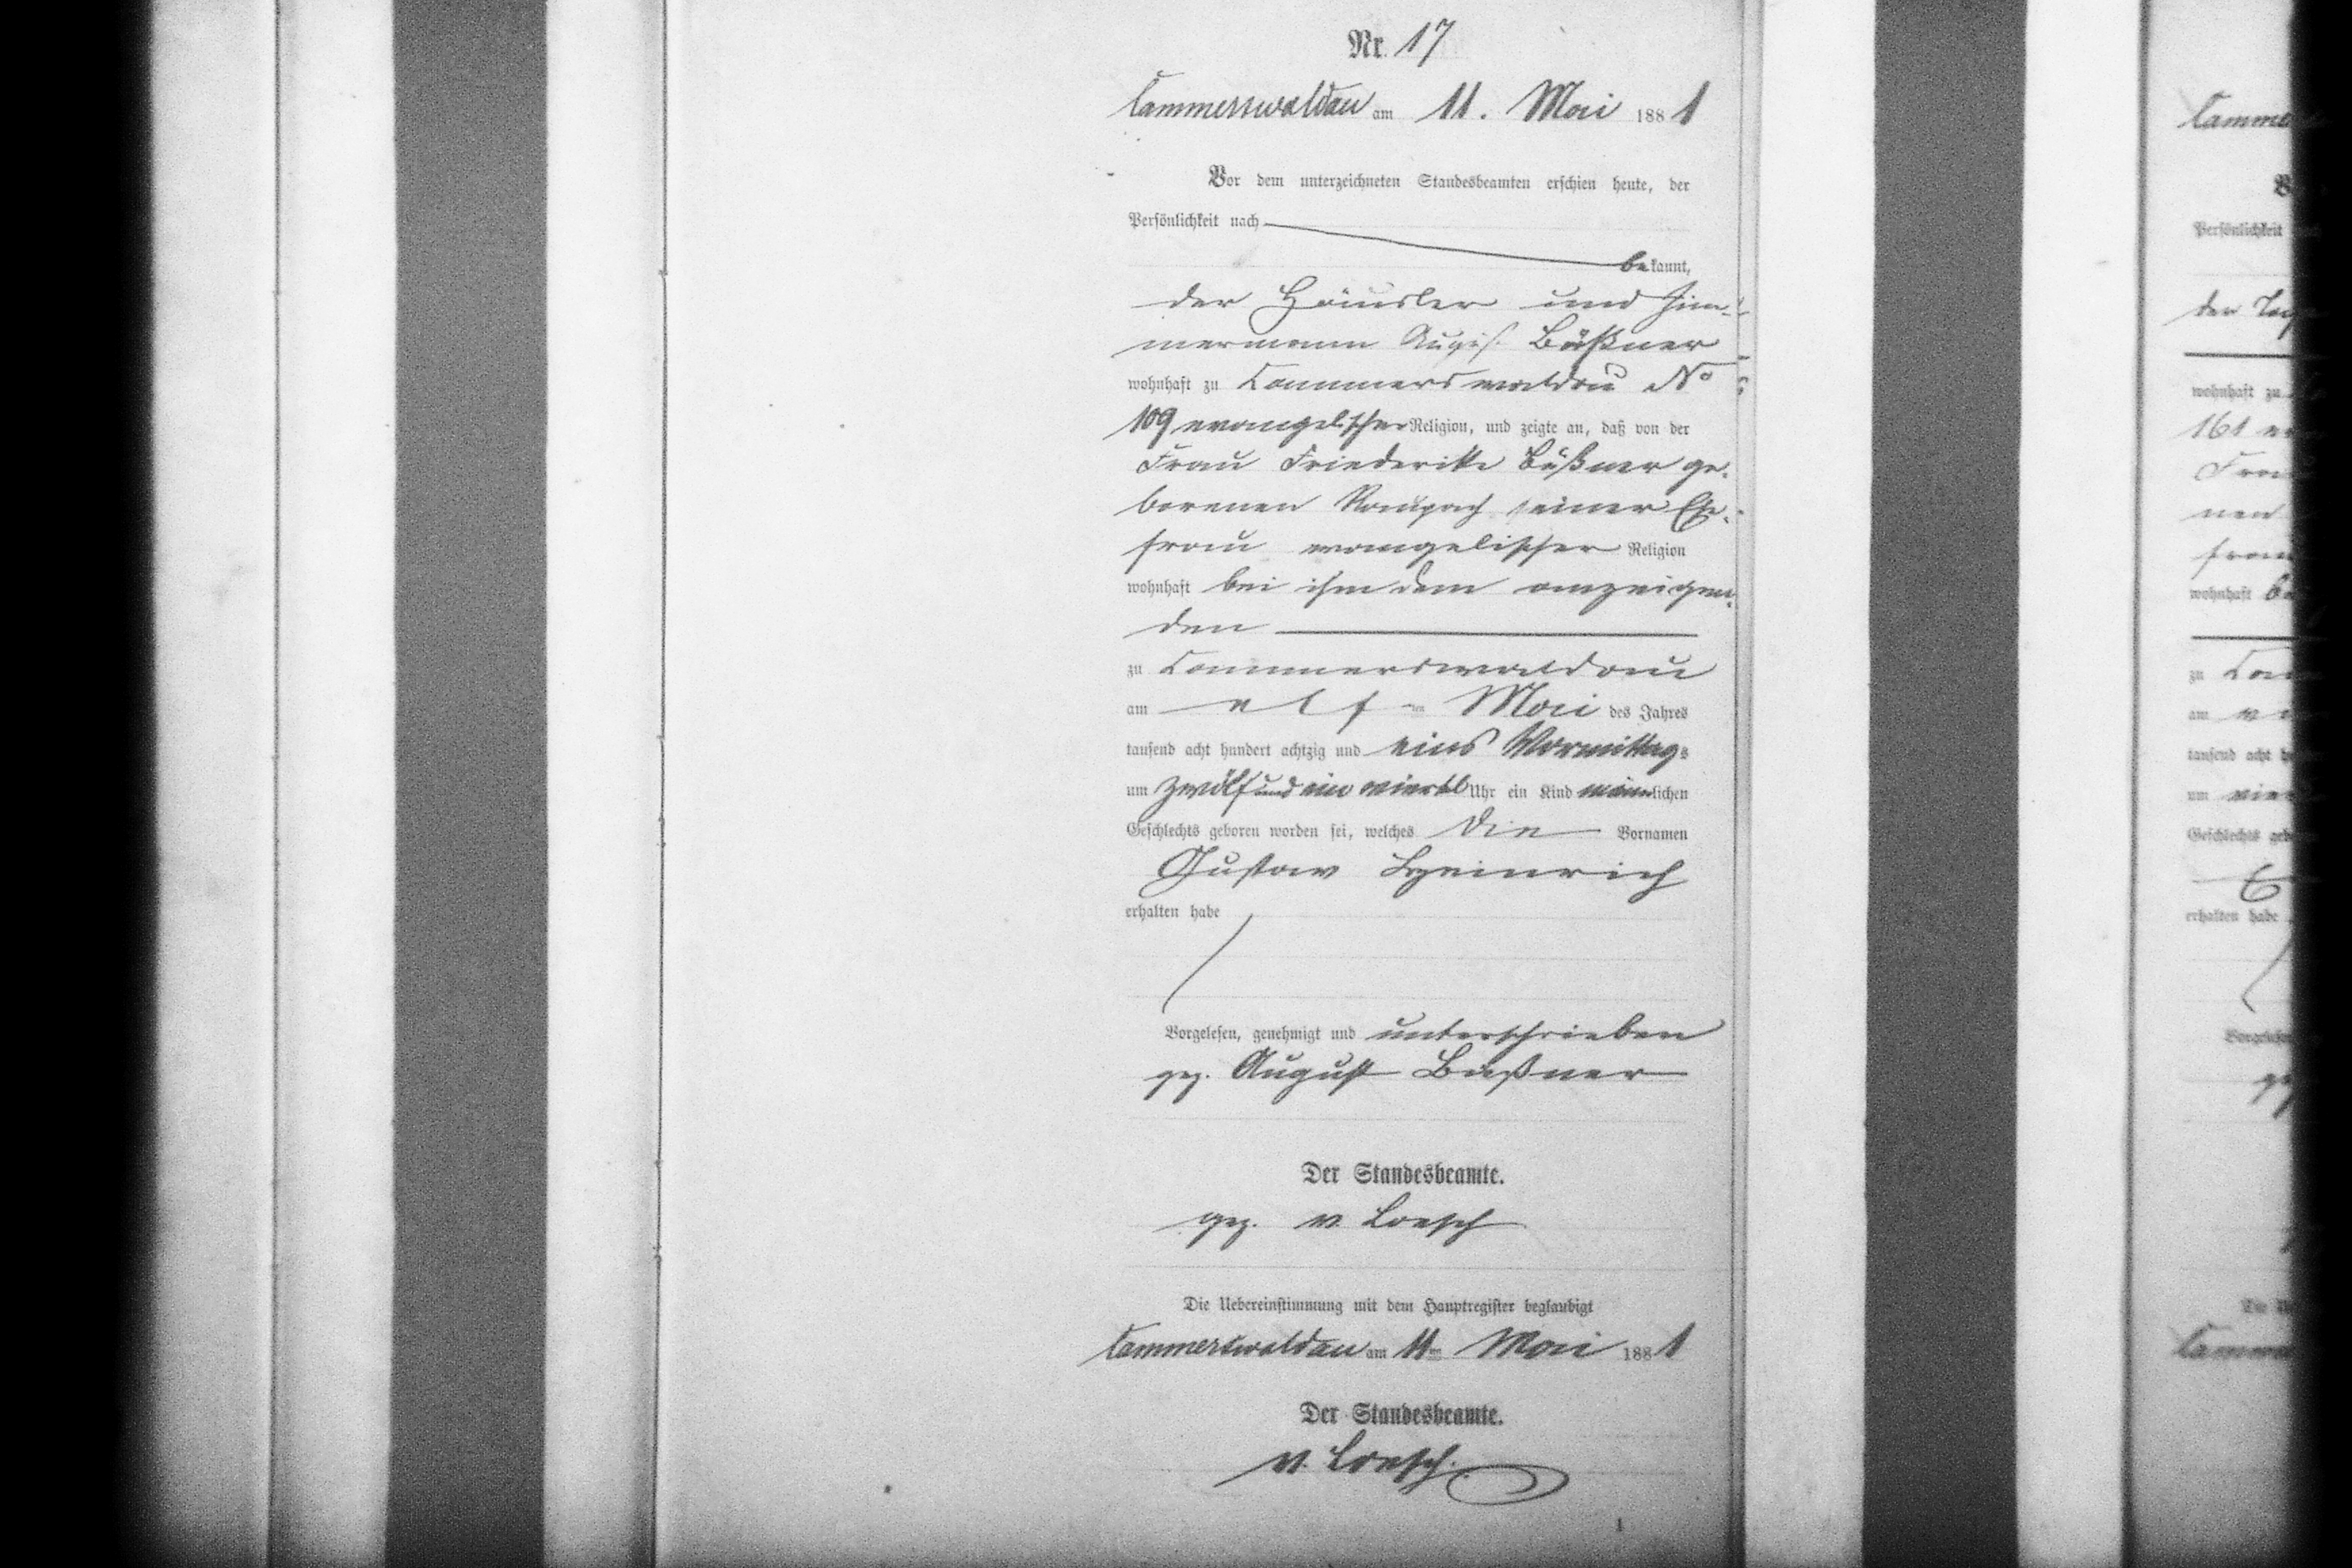 Nr. 17
Cammerswaldau am 11. Mai 1881
Vor dem unterzeichneten Standesbeamten erschien heute, der
Persönlichkeit nach
bekannt,
der Häusler und Zim-
mermann August Büßner
wohnhaft zu Cammerswaldau No
109 evangelischer Religion, und zeigte an, daß von der
Frau Friederike Büßner ge-
borenen Raupach seiner Ehe-
frau evangelischer Religion
wohnhaft bei ihm dem anzeigen-
den
zu Cammerswaldau
am elften Mai des Jahres
tausend acht hundert achtzig und eins Vormittags
um zwölf und ein viertel Uhr ein Kind männlichen
Geschlechts geboren worden sei, welches die Vornamen
Gustav Heinrich
erhalten habe
Vorgelesen, genehmigt und unterschrieben
gez. August Büßner
Der Standesbeamte.
gez. v. Loesch
Die Uebereinstimmung mit dem Hauptregister beglaubigt
Cammerswaldau am 11ten Mai 1881
Der Standesbeamte.
v. Loesch.
1
Camme
Persönlichkeit
der
wohnhaft zu
161
Frau
nen
frau
wohnhaft
zu
am
tausend acht
um
Geschlechts
erhalten habe